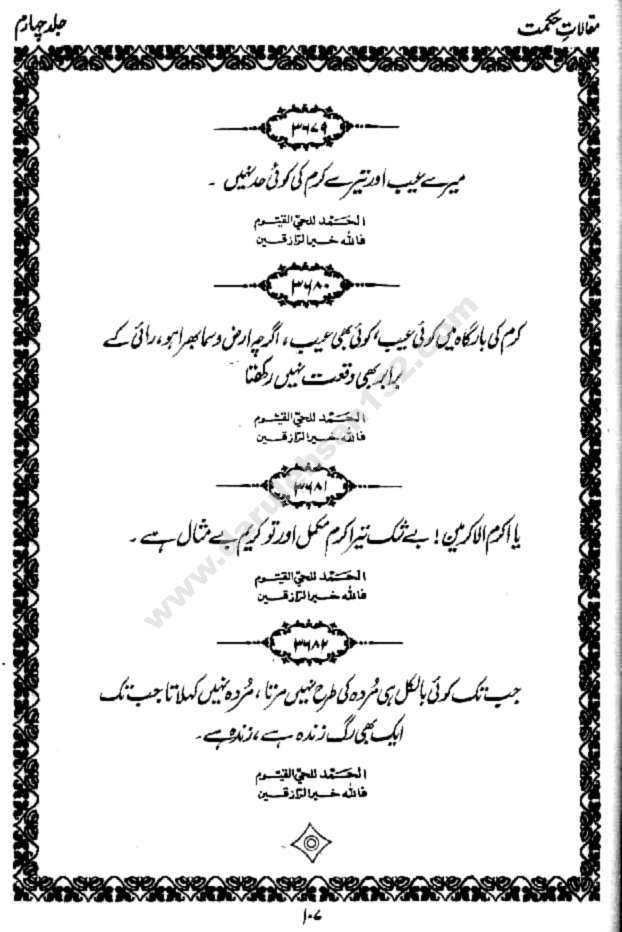 مقالاتِ حکمت
جلد چہارم
۳۶۷۹
میرے عیب اور تیرے کرم کی کوئی حد نہیں ۔
الحَمد للحیّ القیّوم
فاللہ خیر الرازقین
۳۶۸۰
کرم کی بارگاہ میں کوئی عیب، کوئی بھی عیب، اگرچہ ارض و سما بھرا ہو، رائی کے
برابر بھی وقعت نہیں رکھتا
الحَمد للحیّ القیّوم
فاللہ خیر الرازقین
۳۶۸۱
یا اکرم الاکرمین! بے شک تیرا کرم مکمل اور تو کریم بے مثال ہے ۔
الحَمد للحیّ القیّوم
فاللہ خیر الرازقین
۳۶۸۲
جب تک کوئی بالکل ہی مُردہ کی طرح نہیں مرتا، مُردہ نہیں کہلاتا جب تک
ایک بھی رگ زندہ ہے، زندہ ہے۔
الحَمد للحیّ القیّوم
فاللہ خیر الرازقین
۱۰۷
www.darulehsan132.com